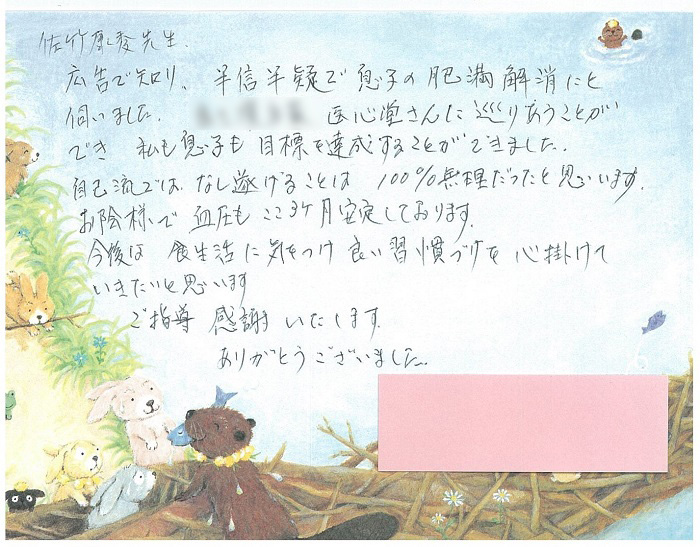 佐竹 先生.
広告で知り、半信半疑で息子の肥満解消にと
伺いました。 医心堂さんに巡りあうことが
でき 私も息子も目標を達成することができました。
自己流では、なし遂げることは 100%無理だったと思います。
お陰様で 血圧も ここ3ヶ月安定しております。
今後は 食生活に気をつけ 良い習慣づけを 心掛けて
いきたいと思います
ご指導 感謝いたします。
ありがとうございました。